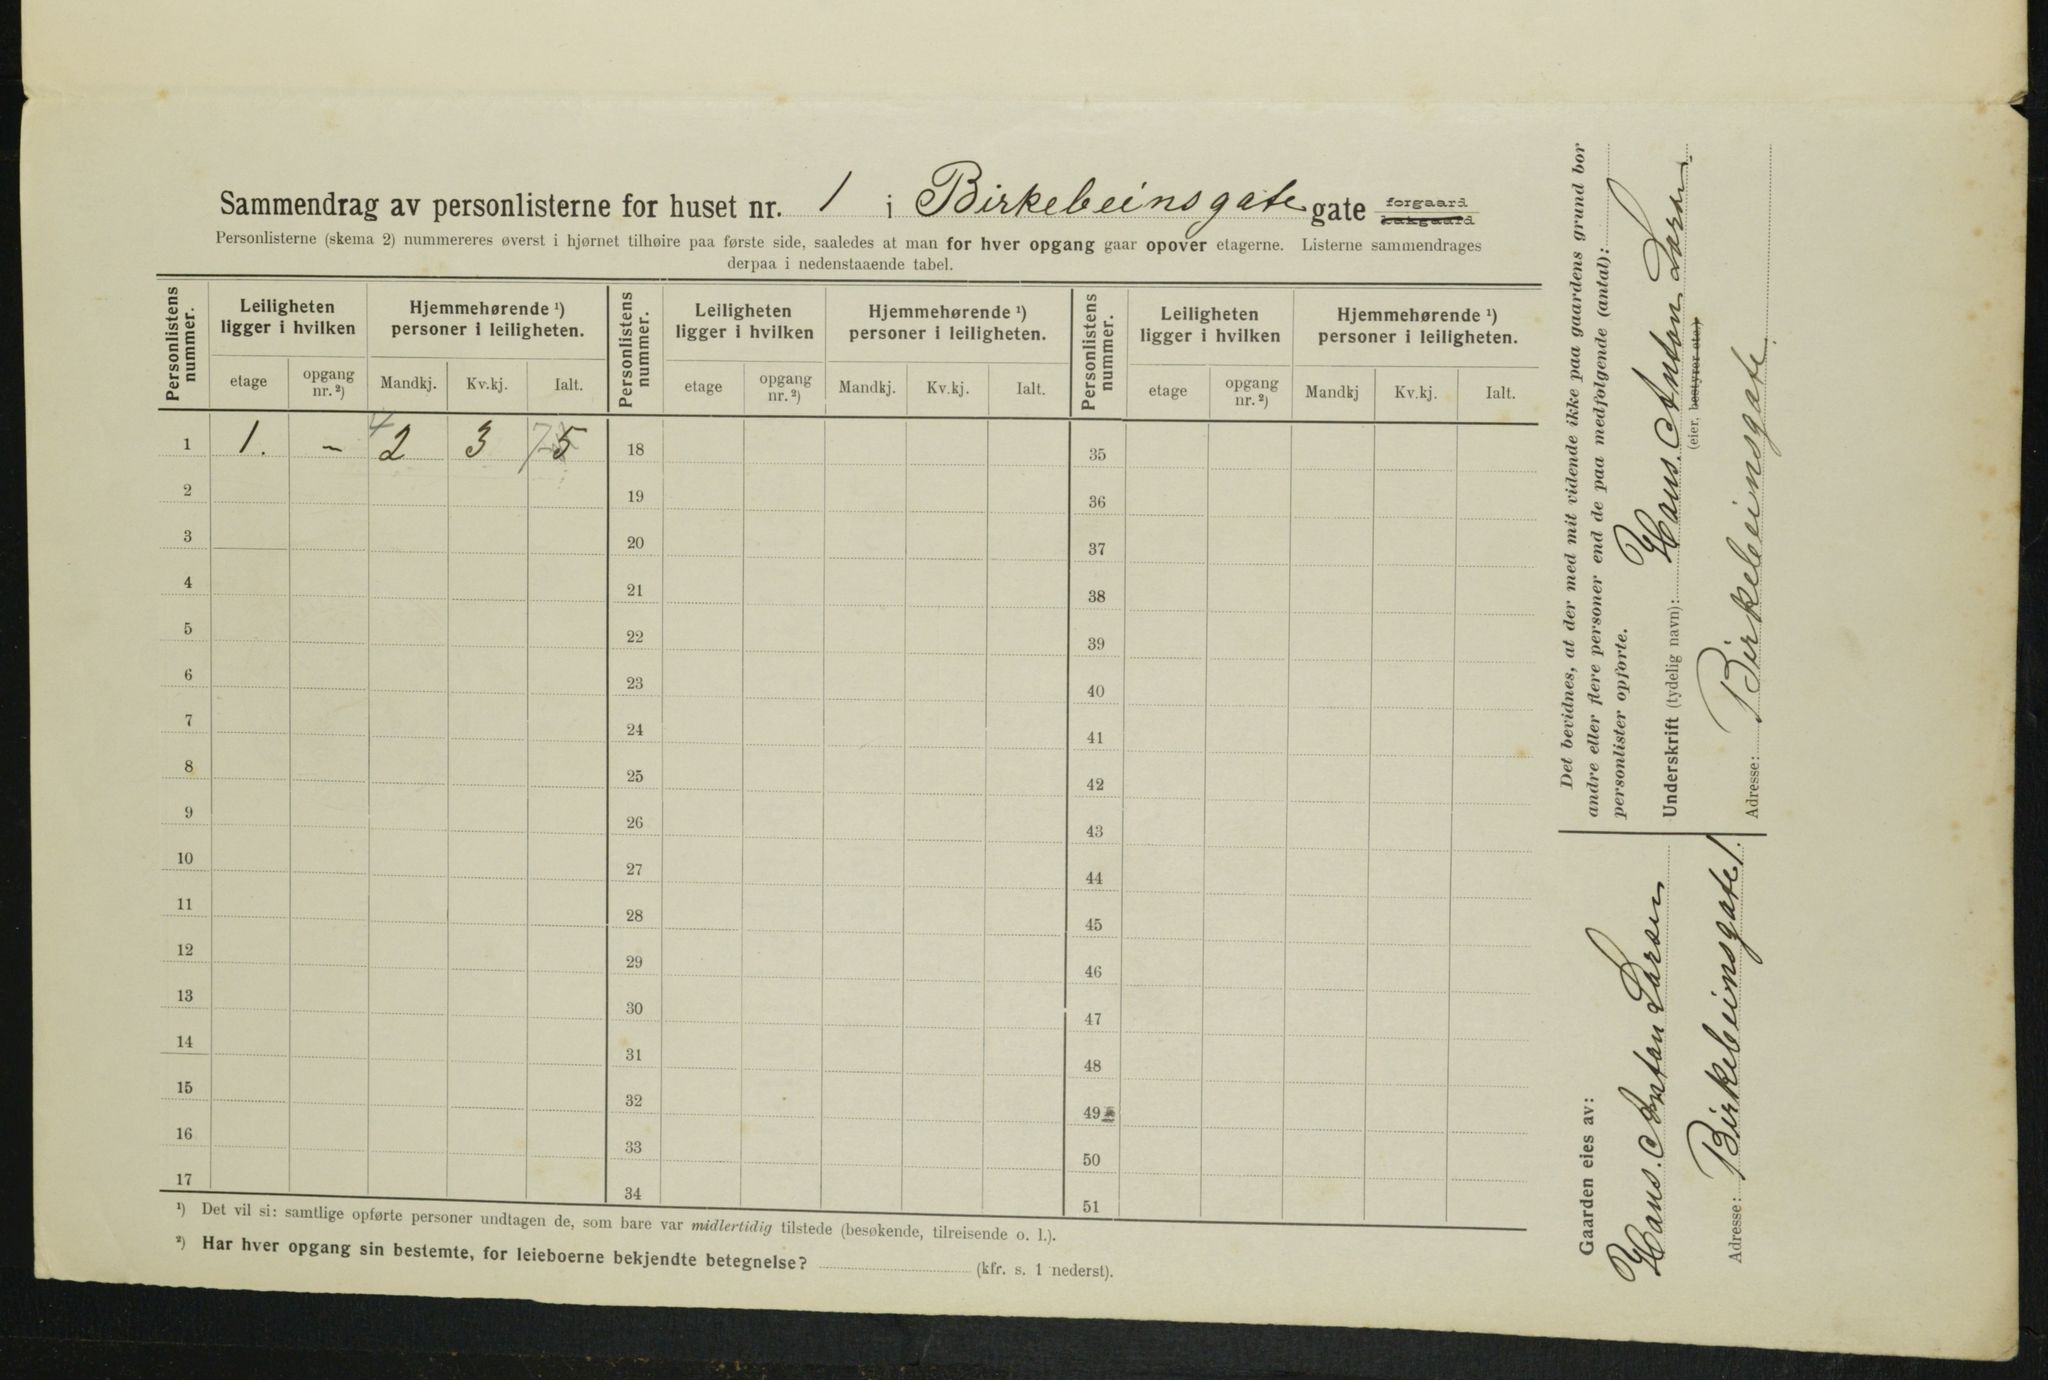 Sammendrag av personlisterne for huset nr. 1 i Birkebeinsgate gate forgaard bakgaard
Personlisterne (skema 2) nummereres øverst i hjørnet tilhøire paa første side, saaledes at man for hver opgang gaar opover etagerne. Listerne sammendrages
derpaa i nedenstaaende tabel.
Personlistens nummer. Leiligheten ligger i hvilken Hjemmehørende ¹) personer i leiligheten. Personlistens nummer. Leiligheten ligger i hvilken Hjemmehørende ¹) personer i leiligheten. Personlistens nummer. Leiligheten ligger i hvilken Hjemmehørende ¹) personer i leiligheten.
etage opgang nr. ²) Mandkj. Kv.kj. Ialt. etage opgang nr. ²) Mandkj. Kv.kj. Ialt. etage opgang nr. ²) Mandkj Kv.kj. Ialt.
1 1. – 4 2 3 7 5 18 35
2 19 36
3 20 37
4 21 38
5 22 39
6 23 40
7 24 41
8 25 42
9 26 43
10 27 44
11 28 45
12 29 46
13 30 47
14 31 48
15 32 49
16 33 50
17 34 51
¹) Det vil si: samtlige opførte personer undtagen de, som bare var midlertidig tilstede (besøkende, tilreisende o. l.).
²) Har hver opgang sin bestemte, for leieboerne bekjendte betegnelse? (kfr. s. 1 nederst).
Det bevidnes, at der med mit vidende ikke paa gaardens grund bor
andre eller flere personer end de paa medfølgende (antal):
personlister opførte.
Underskrift (tydelig navn): Hans. Anton Larsen
(eier, bestyrer etc.)
Adresse: Birkebeinsgate
Gaarden eies av:
Hans. Anton Larsen
Adresse: Birkebeinsgate 1.